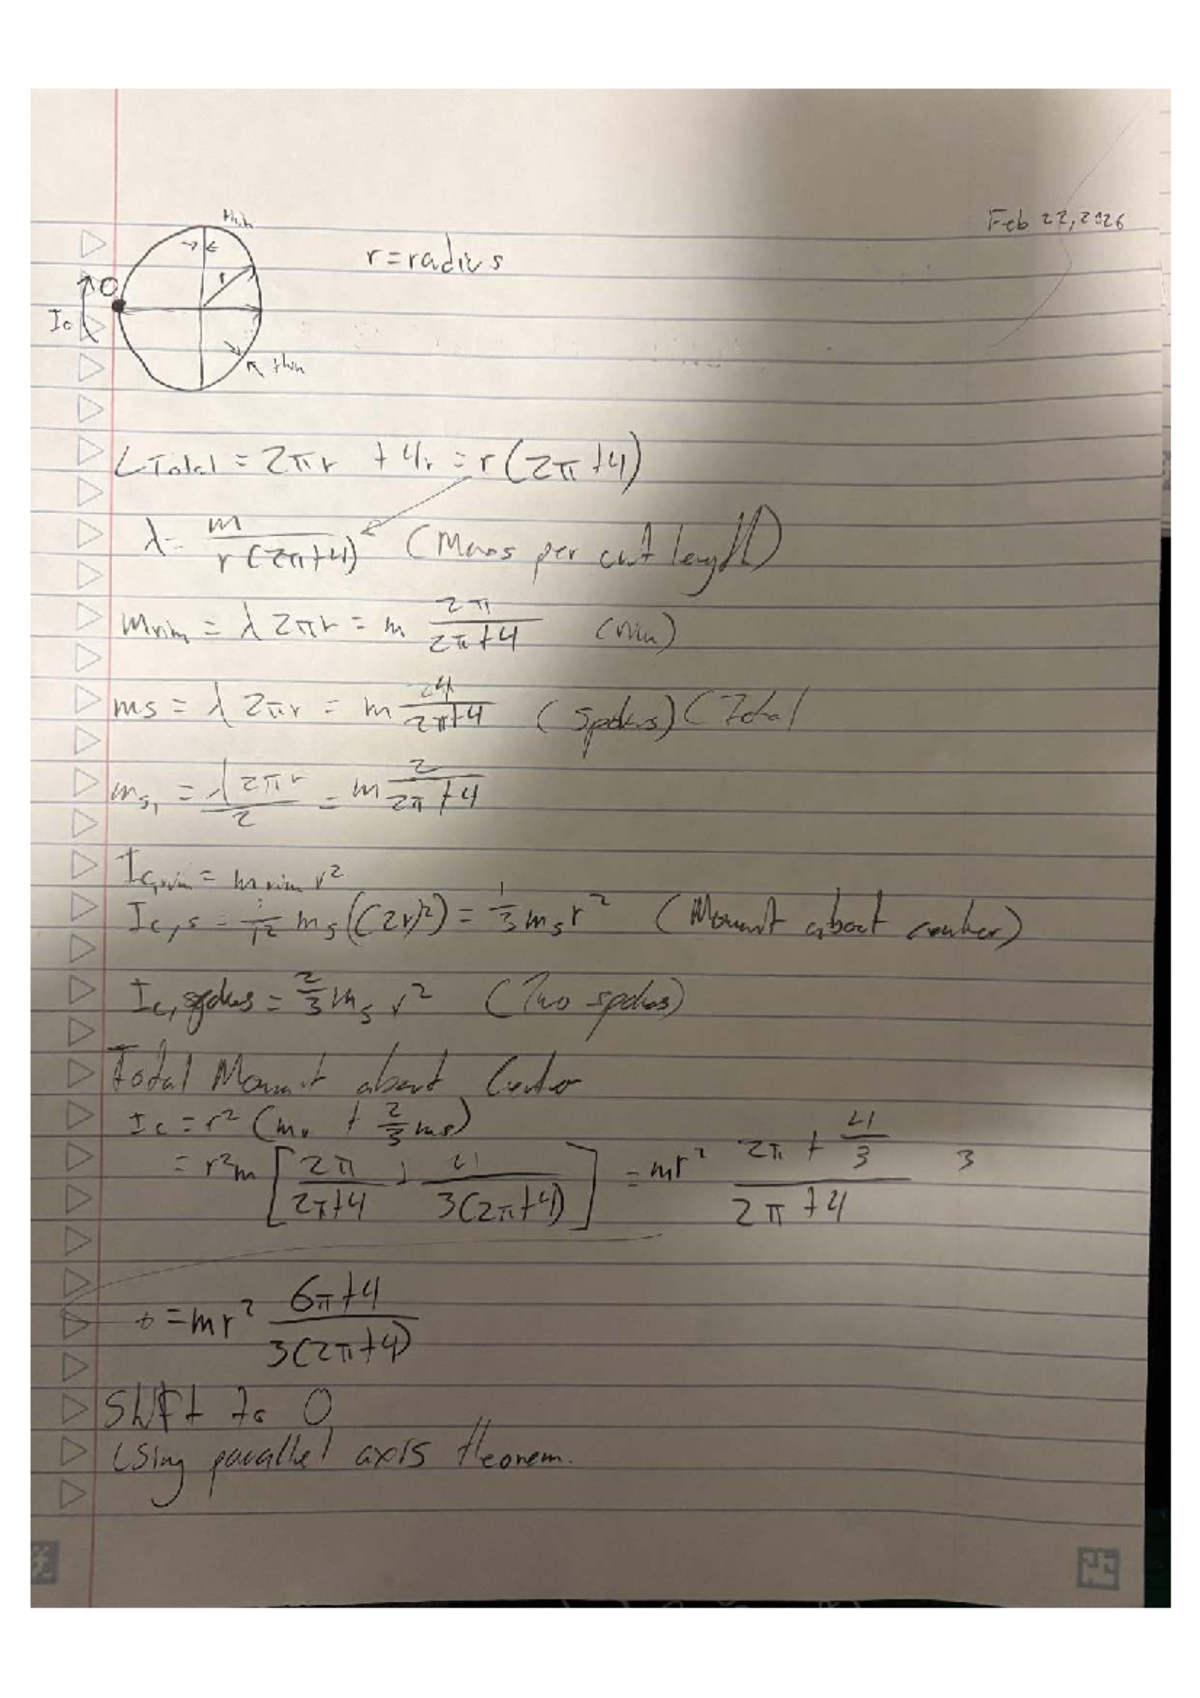 Feb 22, 2026
thin
r = radius
r
O
Ic
thin
LTotal = 2πr + 4r = r(2π+4)
λ = m / r(2π+4) (Mass per unit length)
mrim = λ2πr = m 2π / 2π+4 (rim)
ms = λ2πr = m 4 / 2π+4 (spokes) (Total
ms1 = λ2πr / 2 = m 2 / 2π+4
Ic,rim = mrim r²
Ic,s = 1/12 ms((2r)²) = 1/3 ms r² (Moment about center)
Ic,spokes = 2/3 ms r² (Two spokes)
Total Moment about Center
Ic = r² (mr + 2/3 ms)
= r²m [2π / 2π+4 + 4 / 3(2π+4)] = mr² 2π + 4/3 / 2π+4 3
= mr² 6π+4 / 3(2π+4)
Shift to O
Using parallel axis theorem.